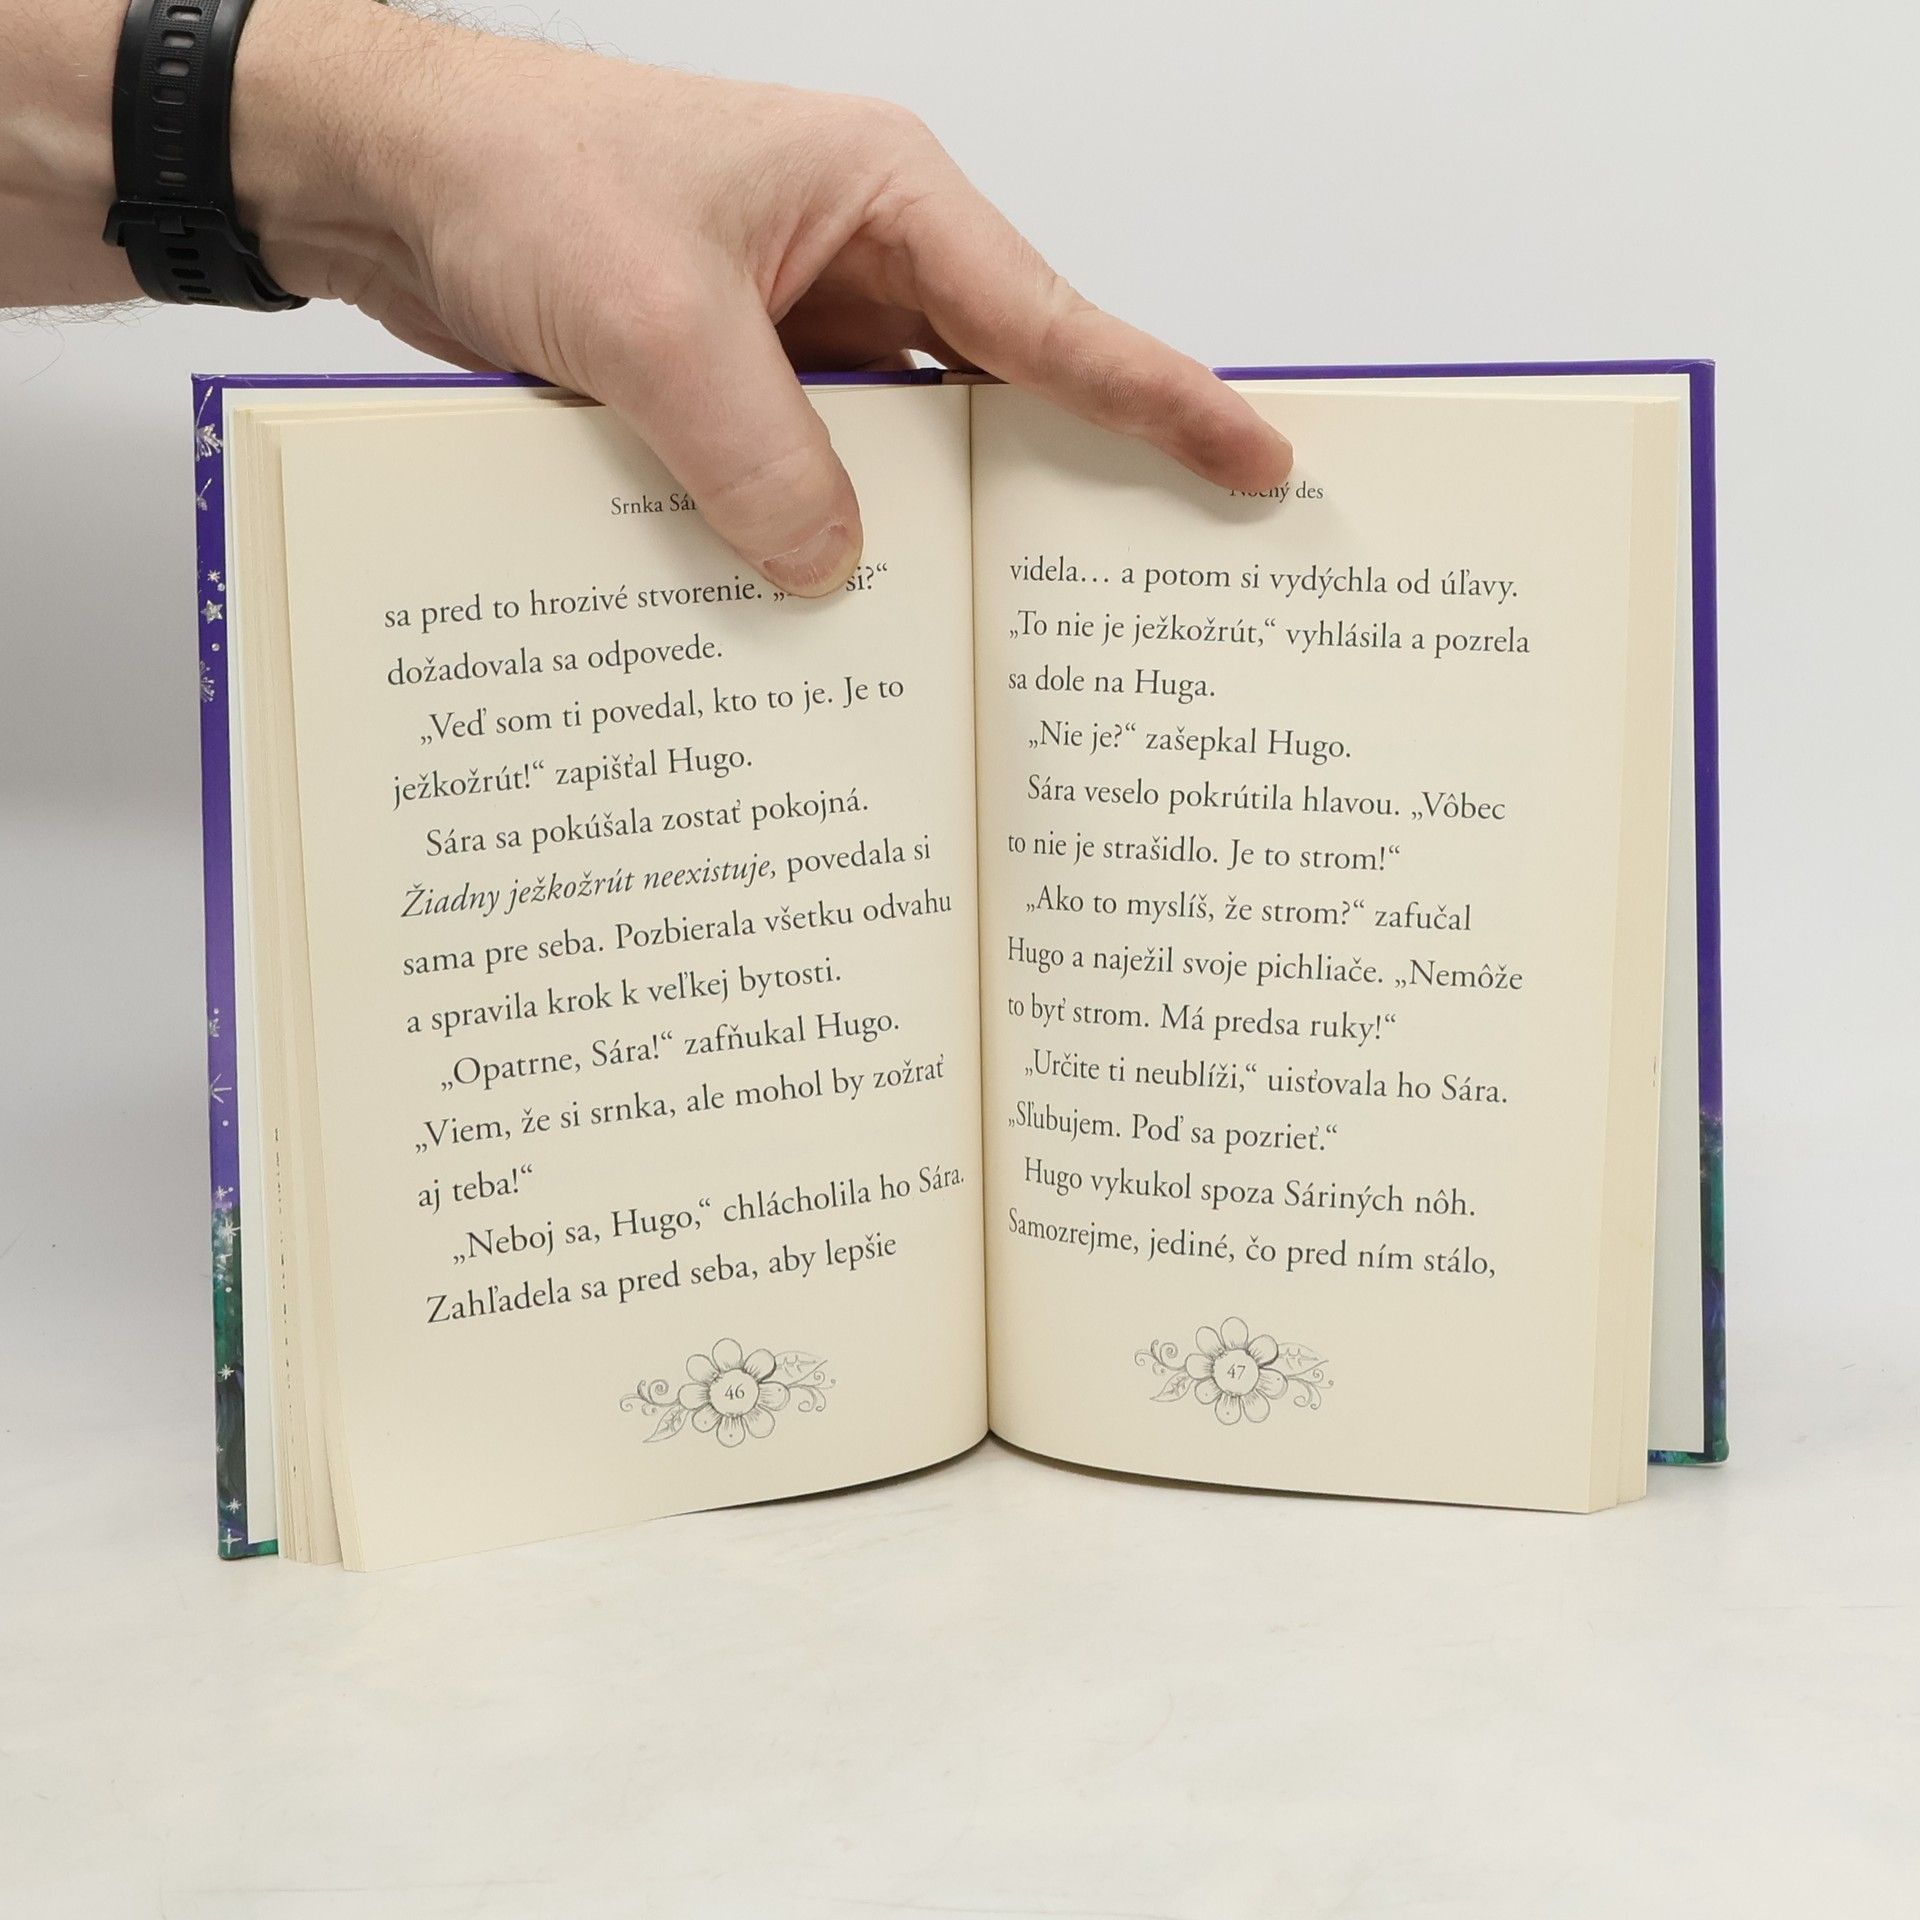 Srnka
sa pred to hrozivé stvorenie. si?“
dožadovala sa odpovede.
„Veď som ti povedal, kto to je. Je to
ježkožrút!“ zapišťal Hugo.
Sára sa pokúšala zostať pokojná.
Žiadny ježkožrút neexistuje, povedala si
sama pre seba. Pozbierala všetku odvahu
a spravila krok k veľkej bytosti.
„Opatrne, Sára!“ zafňukal Hugo.
„Viem, že si srnka, ale mohol by zožrať
aj teba!“
„Neboj sa, Hugo,“ chlácholila ho Sára.
Zahľadela sa pred seba, aby lepšie
46
des
videla… a potom si vydýchla od úľavy.
„To nie je ježkožrút,“ vyhlásila a pozrela
sa dole na Huga.
„Nie je?“ zašepkal Hugo.
Sára veselo pokrútila hlavou. „Vôbec
to nie je strašidlo. Je to strom!“
„Ako to myslíš, že strom?“ zafučal
Hugo a naježil svoje pichliače. „Nemôže
to byť strom. Má predsa ruky!“
„Určite ti neublíži,“ uisťovala ho Sára.
„Sľubujem. Poď sa pozrieť.“
Hugo vykukol spoza Sáriných nôh.
Samozrejme, jediné, čo pred ním stálo,
47